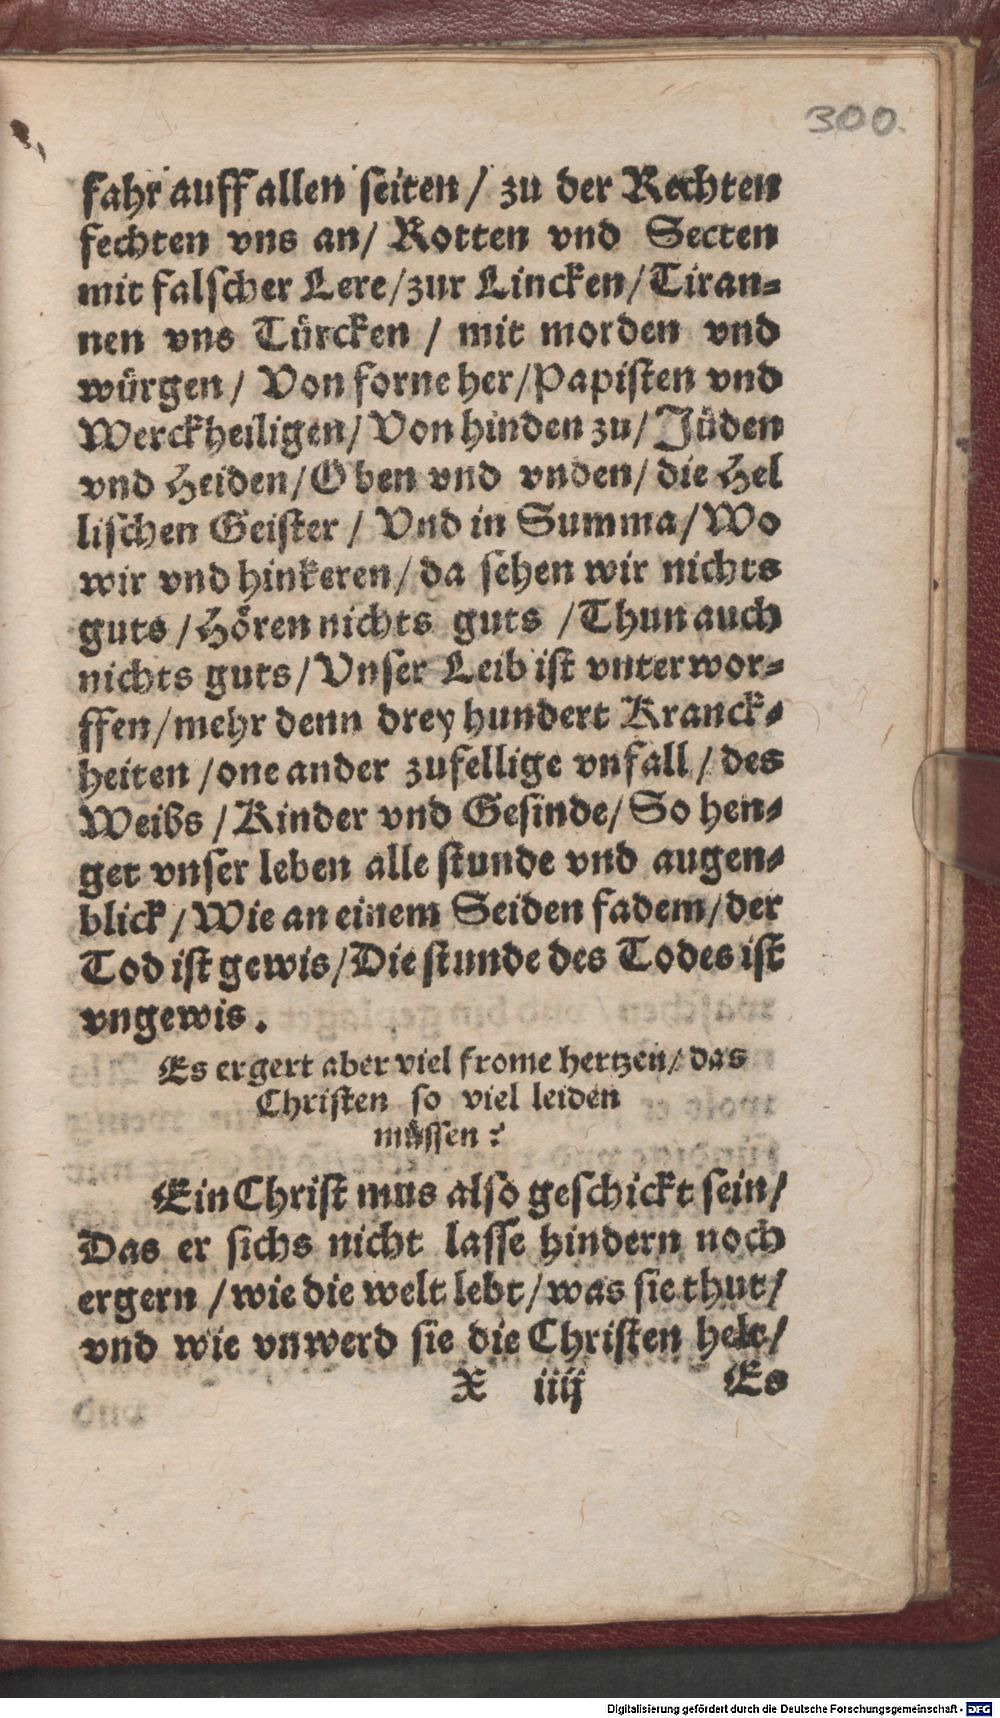 300.
fahr auff allen seiten / zu der Rechten
fechten vns an/ Rotten vnd Secten
mit falscher Lere/zur Lincken/Tiran⸗
nen vns Türcken / mit morden vnd
würgen/ Von forne her/Papisten vnd
Werckheiligen/Von hinden zu/Jüden
vnd Heiden/Oben vnd vnden/die Hel
lischen Geister / Vnd in Summa/Wo
wir vnd hinkeren/da sehen wir nichts
guts /Hören nichts guts /Thun auch
nichts guts/Vnser Leib ist vnterwor⸗
ffen/mehr denn drey hundert Kranck⸗
heiten /one ander zufellige vnfall/des
Weibs /Kinder vnd Gesinde/So hen⸗
get vnser leben alle stunde vnd augen⸗
blick/Wie an einem Seiden fadem/der
Tod ist gewis/Die stunde des Todes ist
vngewis.
Es ergert aber viel frome hertzen/das
Christen so viel leiden
müssen?
Ein Christ mus also geschickt sein/
Das er sichs nicht lasse hindern noch
ergern /wie die welt lebt/was sie thut/
vnd wie vnwerd sie die Christen helt/
X iiij Es
Digitalisierung gefördert durch die Deutsche Forschungsgemeinschaft - DFG